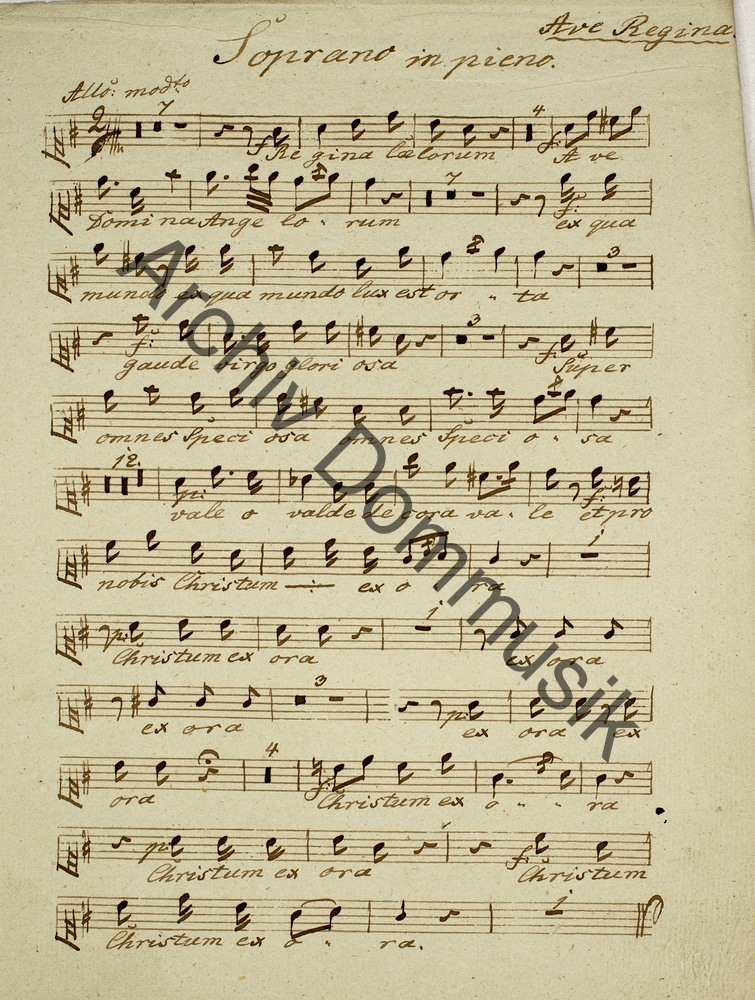 Ave Regina.
Soprano in pieno.
Allo: modto
2 7 4
f Re gina cælorum f: A ve
7
Domi na Ange lo - rum f: ex qua
3
mundo ex qua mundo lux est or " ta
3
f: gaude virgo glori osa f Super
omnes Speci osa omnes Speci o - sa
12.
p: vale o valde decora va - le f: et pro
1
nobis Christum ex o ra
1
p: Christum ex ora ex ora
3
ex ora p: ex ora ex
4
ora f: Christum ex o " " ra
p: Christum ex ora f Christum
1
Christum ex o " ra.
Archiv Dommusik